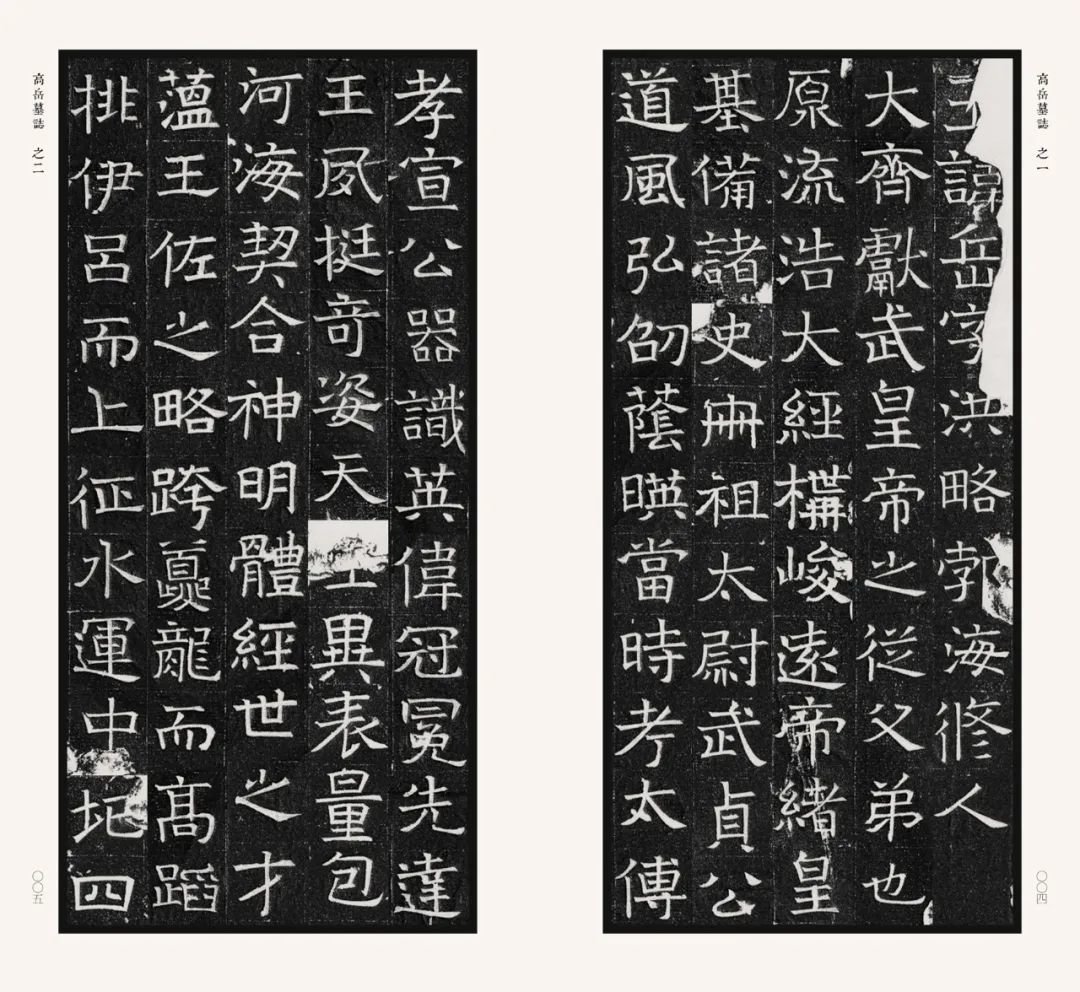 高岳墓誌 之一
王諱岳字洪略勃海脩人
大齊獻武皇帝之從父弟也
原流浩大經構峻遠帝緒皇
基備諸史冊祖太尉武貞公
道風弘劭蔭暎當時考太傅
〇〇四
高岳墓誌 之二
孝宣公器識英偉冠冕先達
王夙挺奇姿天生異表量包
河海契合神明體經世之才
薀王佐之略跨夔龍而高蹈
排伊呂而上征水運中圮四
〇〇五